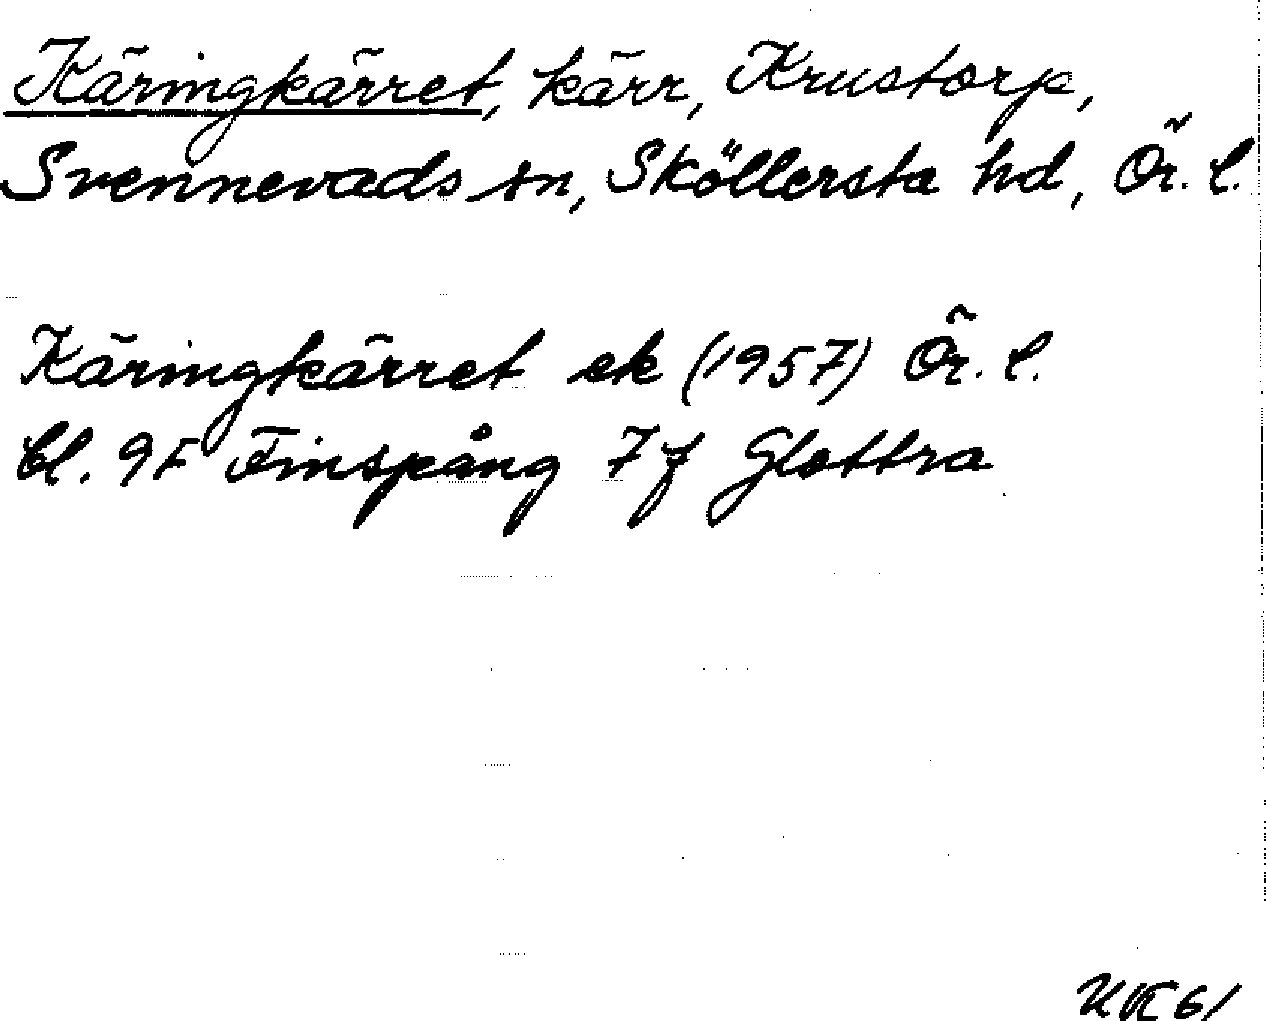 Käringkärret, kärr, Krustorp,
Svennevads sn, Sköllersta hd, Ör. l.
Käringkärret ek (1957) Ör. l.
bl. 9F Finspång 7f Glottra
KK 61